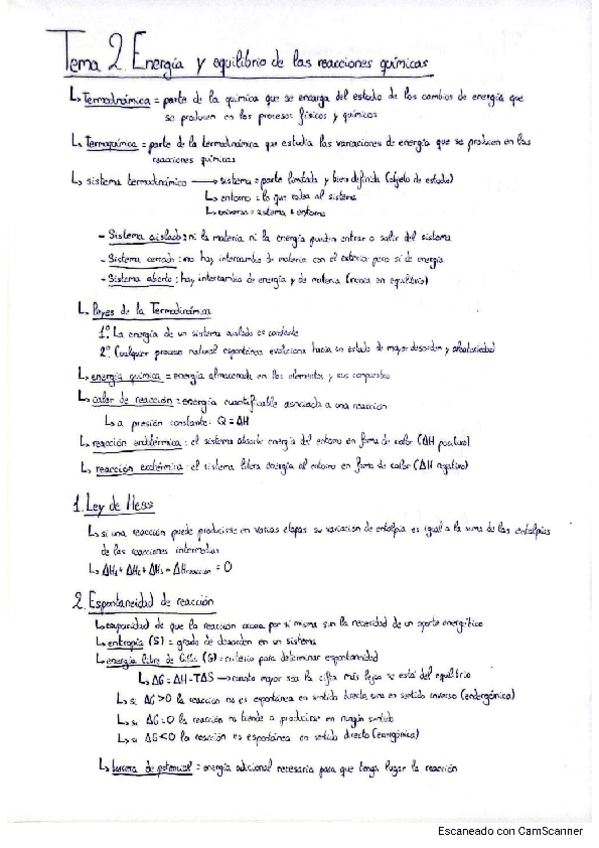 Tema 2. Energía y equilibrio de las reacciones químicas
↳ Termodinámica = parte de la química que se encarga del estudio de los cambios de energía que
se producen en los procesos físicos y químicos
↳ Termoquímica = parte de la termodinámica que estudia las variaciones de energía que se producen en las
reacciones químicas
↳ sistema termodinámico → sistema = parte limitada y bien definida (objeto de estudio)
↳ entorno = lo que rodea al sistema
↳ universo = sistema + entorno
- Sistema aislado: ni la materia ni la energía pueden entrar o salir del sistema
- Sistema cerrado: no hay intercambio de materia con el exterior pero sí de energía
- Sistema abierto: hay intercambio de energía y de materia (nunca en equilibrio)
↳ Leyes de la Termodinámica
1º. La energía de un sistema aislado es constante
2º. Cualquier proceso natural espontáneo evoluciona hacia un estado de mayor desorden y aleatoriedad
↳ energía química = energía almacenada en los elementos y sus compuestos
↳ calor de reacción = energía cuantificable asociada a una reacción
↳ a presión constante: Q = ΔH
↳ reacción endotérmica: el sistema absorbe energía del entorno en forma de calor (ΔH positivo)
↳ reacción exotérmica: el sistema libera energía al entorno en forma de calor (ΔH negativo)
1. Ley de Hess
↳ si una reacción puede producirse en varias etapas su variación de entalpía es igual a la suma de las entalpías
de las reacciones intermedias
↳ ΔH₁ + ΔH₂ + ΔH₃ - ΔHreacción = 0
2. Espontaneidad de reacción
↳ capacidad de que la reacción ocurra por sí misma sin la necesidad de un aporte energético
↳ entropía (S) = grado de desorden en un sistema
↳ energía libre de Gibbs (G) = criterio para determinar espontaneidad
↳ ΔG = ΔH - TΔS → cuanto mayor sea la cifra más lejos se está del equilibrio
↳ si ΔG > 0 la reacción no es espontánea en sentido directo, sino en sentido inverso (endergónica)
↳ si ΔG = 0 la reacción no tiende a producirse en ningún sentido
↳ si ΔG < 0 la reacción es espontánea en sentido directo (exergónica)
↳ barrera de potencial = energía adicional necesaria para que tenga lugar la reacción
Escaneado con CamScanner